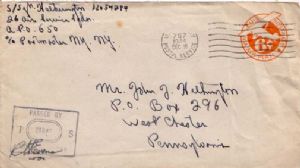 S/Sgt. Hethrington
26 Air Service Gpdn.
A.P.O. 650
c/o Postmaster N.Y. N.Y.
U.S.
797
DEC
POSTAL SERVICE
6¢
Mr. John J. Hethington
P.O. Box 296
West Chester
Pennsylvania
PASSED BY
S